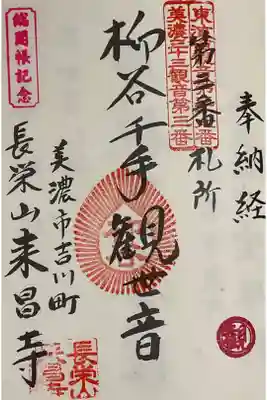 奉納経
第三番札所
美濃三十三観音第三番
柳谷千手観世音
総開帳記念
美濃市吉川町
長栄山来昌寺
長栄山